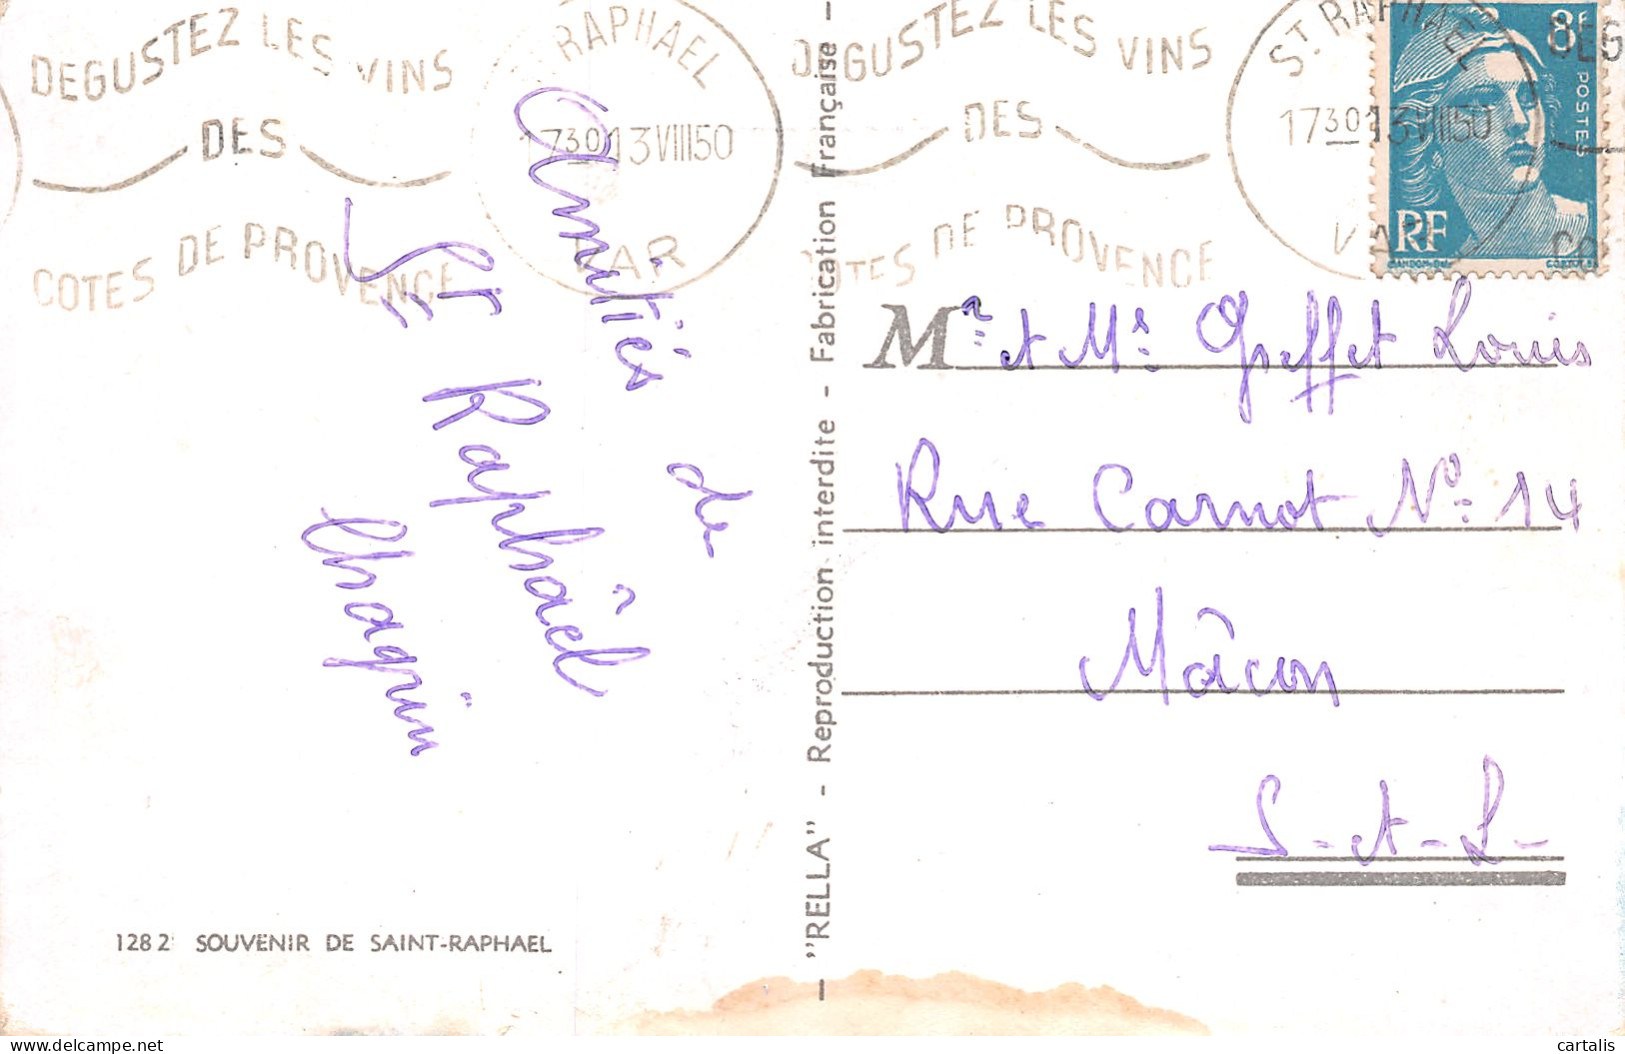 DEGUSTEZ LES VINS
DES
COTES DE PROVENCE
RAPHAEL
1730 13 VIII 50
VAR
DEGUSTEZ LES VINS
DES
COTES DE PROVENCE
ST RAPHAEL
1730 13 VIII 50
VAR
8F
POSTES
RF
DEG
Amitiés de
St Raphaël
"RELLA" - Reproduction interdite - Fabrication Française -
Mr et Ms Greffet Louis
Rue Carnot No 14
Mâcon
S-et-L-
1282 SOUVENIR DE SAINT-RAPHAEL
cartalis
delcampe.net